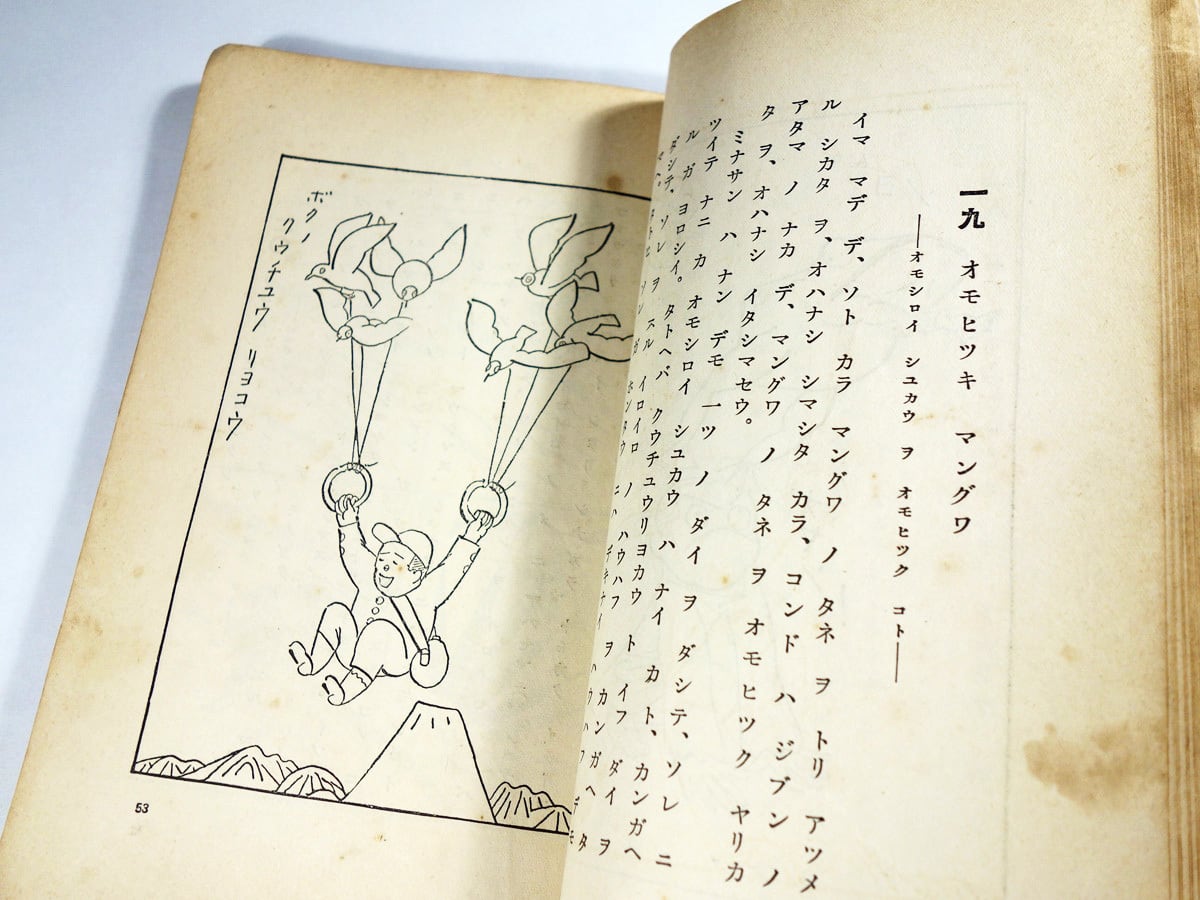 一九 オモヒツキ マングワ
―オモシロイ シユカウ ヲ オモヒツク コト―
イマ マデ デ、ソト カラ マングワ ノ タネ ヲ トリ アツメ
ル シカタ ヲ、オハナシ シマシタ カラ、コンド ハ ジブン ノ
アタマ ノ ナカ デ、マングワ ノ タネ ヲ オモヒツク ヤリカ
タ ヲ、オハナシ イタシマセウ。
ミナサン ハ ナン デモ 一ツ ノ ダイ ヲ ダシテ、ソレ ニ
ツイテ ナニ カ オモシロイ シユカウ ハ ナイ カ ト、カンガヘ
ル ガ ヨロシイ。タトヘバ クウチユウリヨカウ ト イフ ダイ ヲ
ダシテ、ソレ ヲ スル イロイロ ノ ハウハフ ヲ カンガヘ タ
マヘ。 ホンタウ ニハ デキナイ ハウハフ デモ
ボクノ
クウチユウ リヨコウ
53